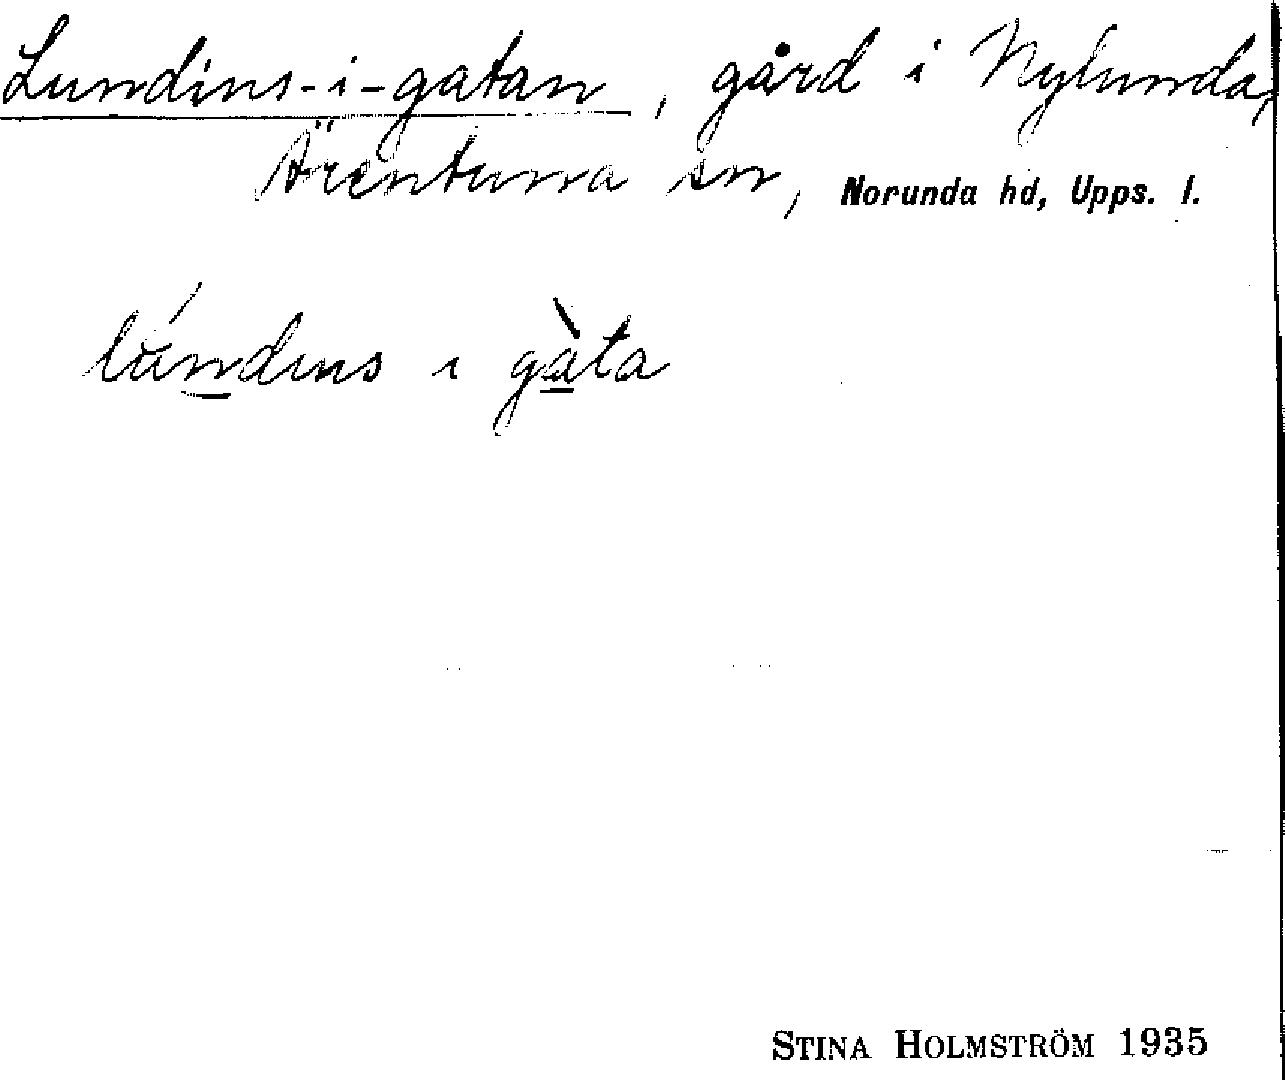 Lundins-i-gatan, gård i Nylunda,
Ärentuna sn, Norunda hd, Upps. l.
lúndıns ı gàta
STINA HOLMSTRÖM 1935